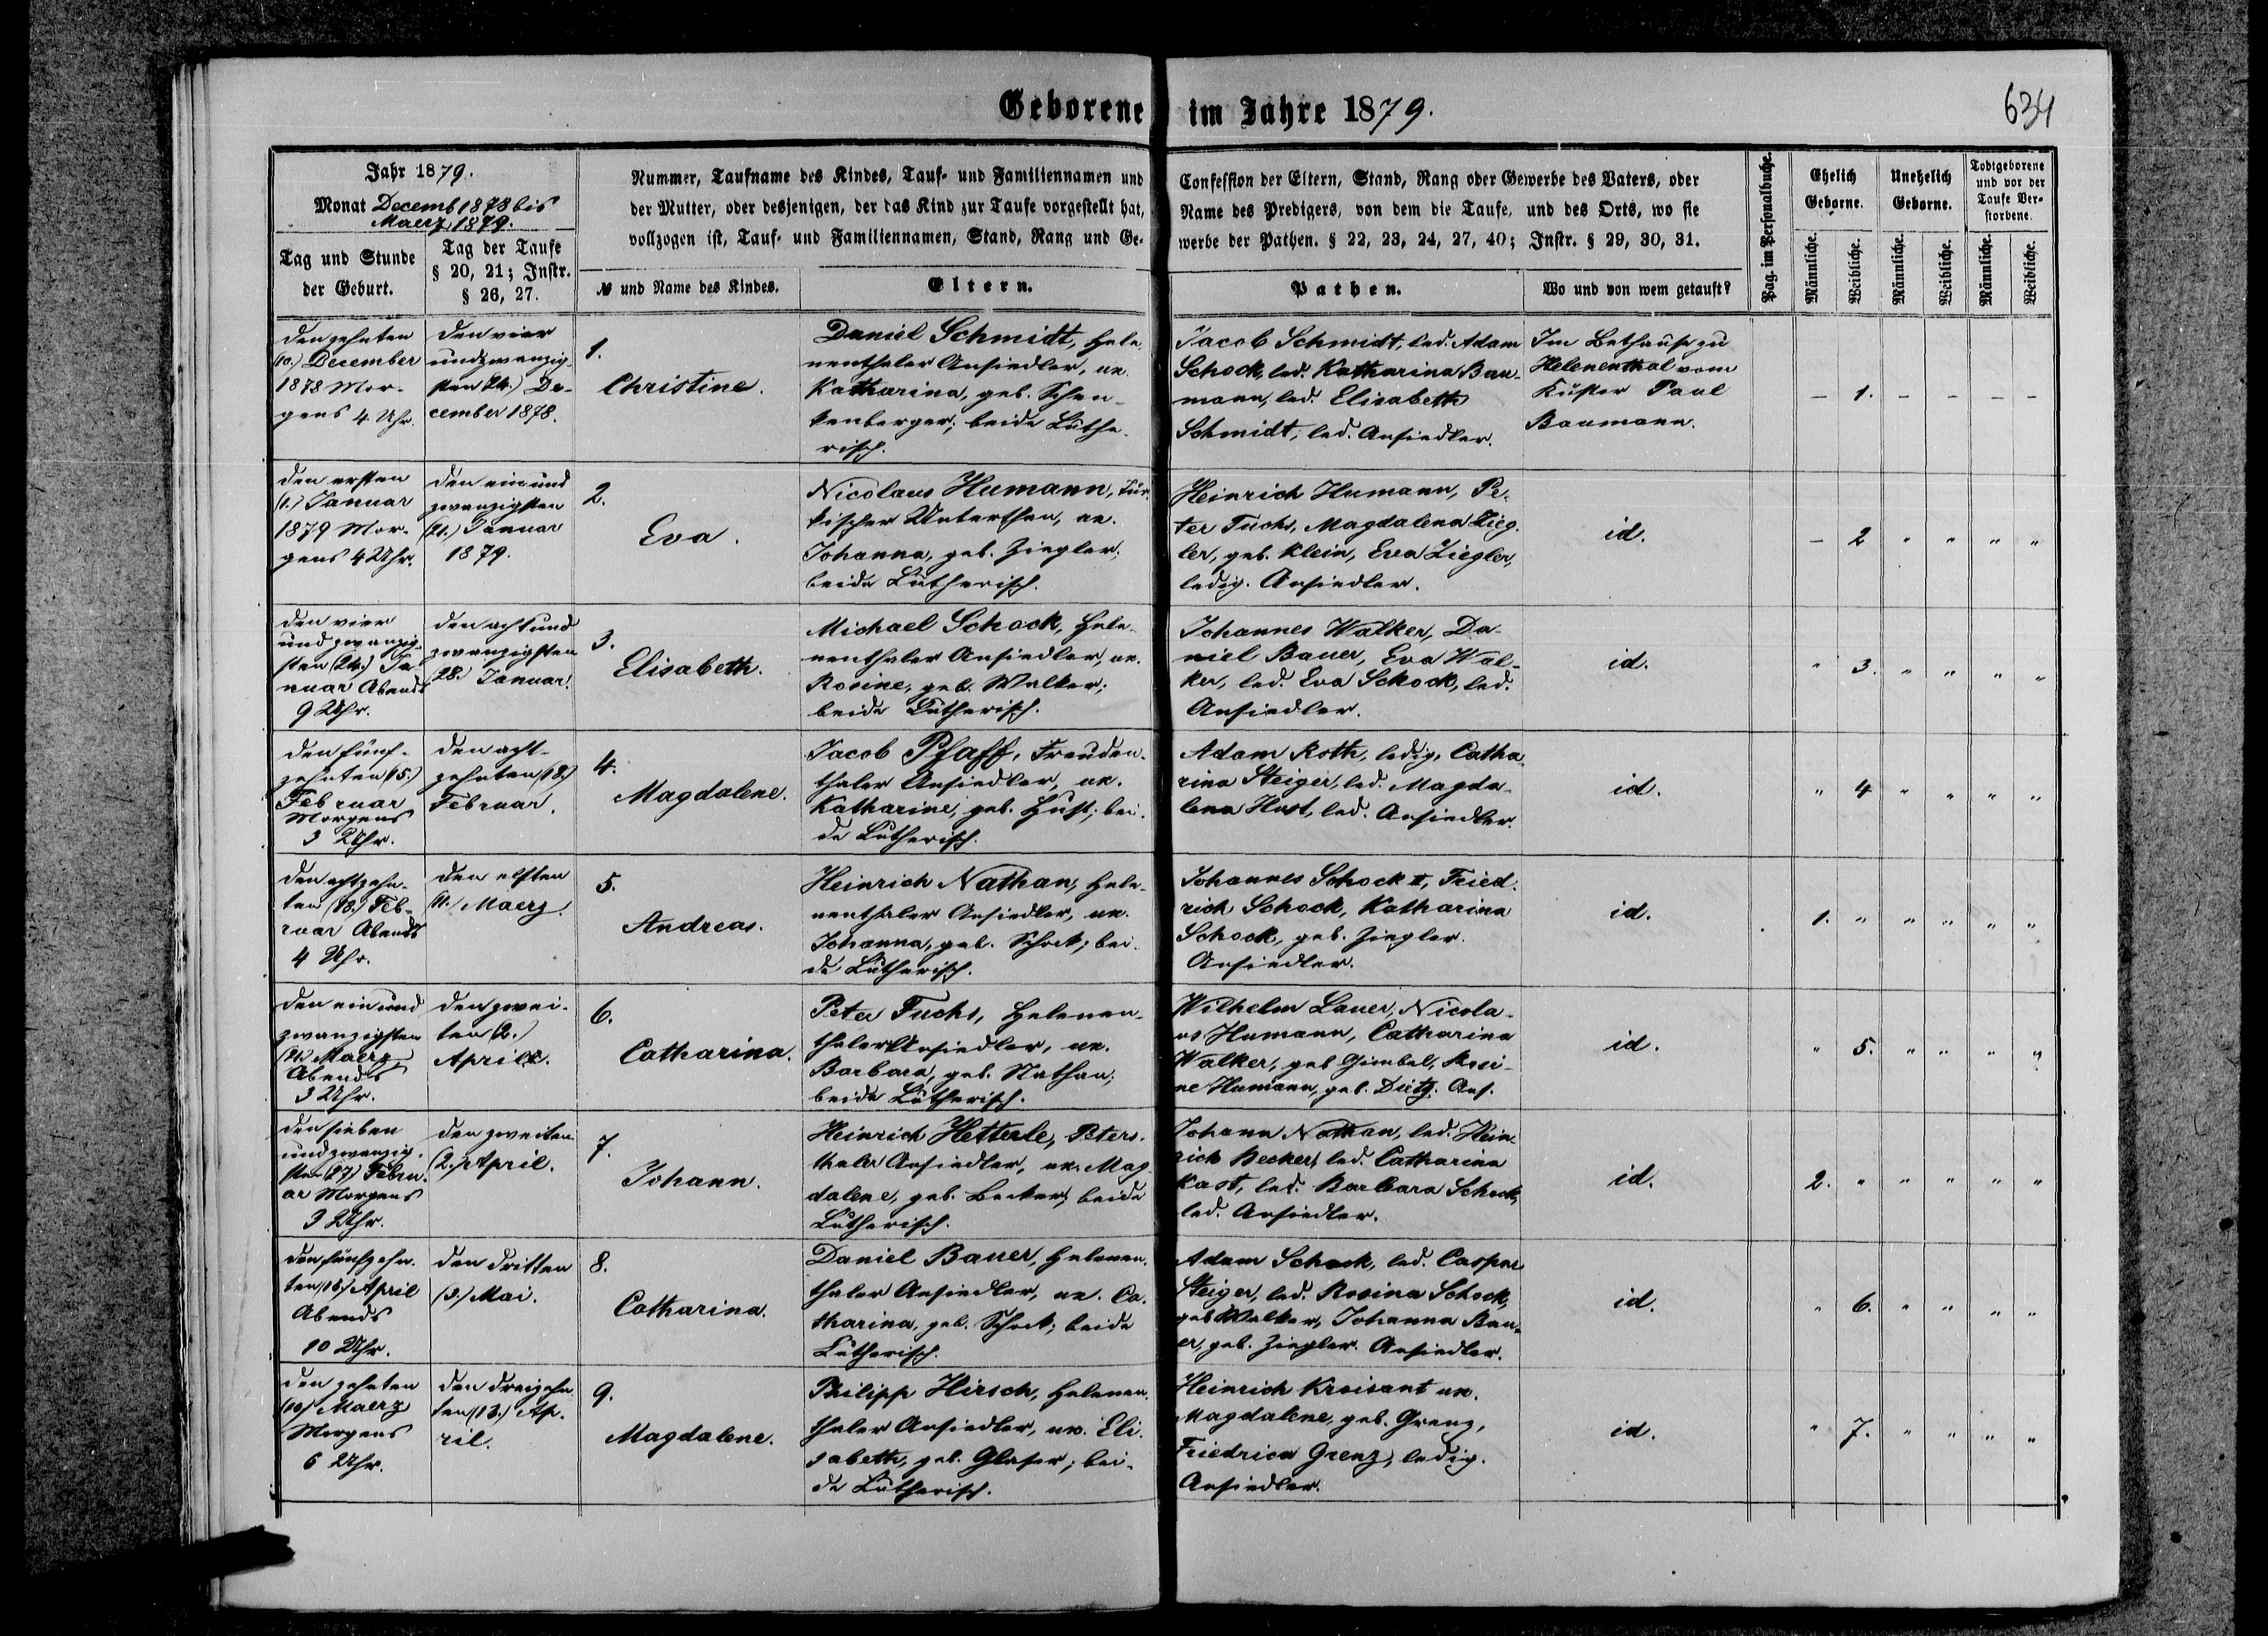 Geborene im Jahre 1879.
634
Jahr 1879.
Monat Decemb 1878 bis
Maerz 1879.
Tag und Stunde
der Geburt.
Tag der Taufe
§ 20, 21; Instr.
§ 26, 27.
Nummer, Taufname des Kindes, Tauf- und Familiennamen und
der Mutter, oder desjenigen, der das Kind zur Taufe vorgestellt hat,
vollzogen ist, Tauf- und Familiennamen, Stand, Rang und Ge-
№ und Name des Kindes.
Eltern.
Confession der Eltern, Stand, Rang oder Gewerbe des Vaters, oder
Name des Predigers, von dem die Taufe, und des Orts, wo sie
werbe der Pathen. § 22, 23, 24, 27, 40; Instr. § 29, 30, 31.
Pathen.
Wo und von wem getauft?
Pag. im Personalbuche.
Ehelich
Geborne.
Unehelich
Geborne.
Todtgeborene
und vor der
Taufe Ver-
storbene.
Männliche.
Weibliche.
Männliche.
Weibliche.
Männliche.
Weibliche.
den zehnten
(10.) December
1878 Mor-
gens 4 Uhr.
den vier
und zwanzig-
sten (24.) De-
cember 1878.
1.
Christine.
Daniel Schmidt, Hele-
nenthaler Ansiedler, ux.
Katharina, geb. Schen-
kenberger; beide Luthe-
risch.
Jacob Schmidt, led. Adam
Schock, led. Katharina Bau-
mann, led. Elisabeth
Schmidt, led. Ansiedler.
Im Bethause zu
Helenenthal vom
Küster Paul
Baumann.
– 1. – – – –
den ersten
(1.) Januar
1879 Mor-
gens 4 Uhr.
den ein und
zwanzigsten
(21.) Januar
1879.
2.
Eva.
Nicolaus Humann, Tür-
kischer Unterthan, ux.
Johanna, geb. Ziegler;
beide Lutherisch.
Heinrich Humann, Pe-
ter Fuchs, Magdalena Zieg-
ler, geb. Klein, Eva Ziegler,
ledig. Ansiedler.
id.
– 2 " " " "
den vier
und zwanzig-
sten (24.) Ja-
nuar Abends
9 Uhr.
den acht und
zwanzigsten
28. Januar.
3.
Elisabeth.
Michael Schock, Hele-
nenthaler Ansiedler, ux.
Rosine, geb. Walker;
beide Lutherisch.
Johannes Walker, Da-
niel Bauer, Eva Wal-
ker, led. Eva Schock, led.
Ansiedler.
id.
" 3. " " " "
den fünf-
zehnten (15.)
Februar
Morgens
3 Uhr.
den acht-
zehnten (18.)
Februar.
4.
Magdalene.
Jacob Pfaff, Freuden-
thaler Ansiedler, ux.
Katharine, geb. Hust; bei-
de Lutherisch.
Adam Roth, ledig, Catha-
rina Steiger, led. Magda-
lena Hust, led. Ansiedler.
id.
" 4 " " " "
den achtzehn-
ten (18.) Feb-
ruar Abends
4 Uhr.
den elften
(11.) Maerz.
5.
Andreas.
Heinrich Nathan, Hele-
nenthaler Ansiedler, ux.
Johanna, geb. Schock; bei-
de Lutherisch.
Johannes Schock II, Fried-
rich Schock, Katharina
Schock, geb. Ziegler.
Ansiedler.
id.
1. " " " " "
den ein und
zwanzigsten
(21.) Maerz
Abends
3 Uhr.
den zwei-
ten (2.)
April.
6.
Catharina.
Peter Fuchs, Helenen-
thaler Ansiedler, ux.
Barbara, geb. Nathan;
beide Lutherisch.
Wilhelm Lauer, Nicola-
us Humann, Catharina
Walker, geb Gimbel, Rosi-
ne Humann, geb. Dietz. Ans.
id.
" 5. " " " "
den sieben
und zwanzig-
sten (27.) Febru-
ar Morgens
3 Uhr.
den zweiten
(2.) April.
7.
Johann.
Heinrich Hetterle, Peters-
thaler Ansiedler, ux. Mag-
dalene, geb. Becker; beide
Lutherisch.
Johann Nathan, led. Hein-
rich Becker, led. Catharina
Kast, led. Barbara Schock,
led. Ansiedler.
id.
2. " " " " "
den fünfzehn-
ten (15.) April
Abends
10 Uhr.
den dritten
(3.) Mai.
8.
Catharina.
Daniel Bauer, Helenen-
thaler Ansiedler, ux. Ca-
tharina, geb. Schock; beide
Lutherisch.
Adam Schock, led. Caspar
Steiger, led. Rosina Schock,
geb Walker, Johanna Bau-
er, geb. Ziegler. Ansiedler.
id.
" 6. " " " "
den zehnten
(10.) Maerz
Morgens
6 Uhr.
den dreizehn-
ten (13.) Ap-
ril.
9.
Magdalene.
Philipp Hirsch, Helenen-
thaler Ansiedler, ux. Eli-
sabeth, geb. Glaser; bei-
de Lutherisch.
Heinrich Kroisant ux.
Magdalene, geb. Grenz,
Friedrica Grenz, ledig.
Ansiedler.
id.
" 7. " " " "